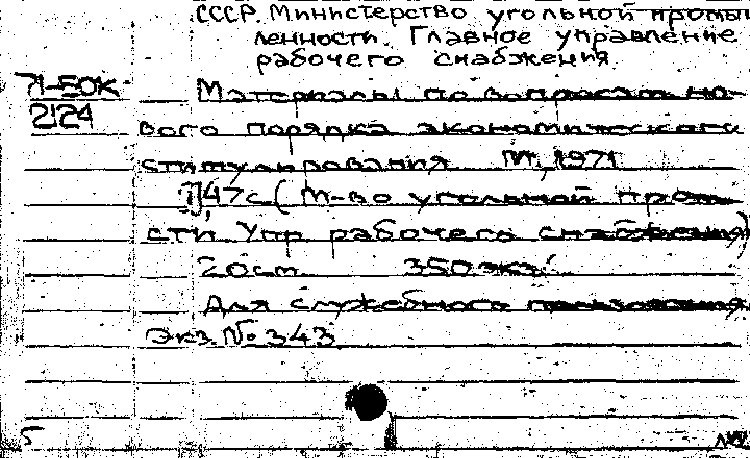 СССР. Министерство угольной промыш
ленности. Главное управление
рабочего снабжения.
71-БОК
2124
Материалы по вопросам но-
вого порядка экономического
стимулирования М., 1971
47с (М-во угольной пром-
сти Упр рабочего снабжения)
20см 350 экз.
Для служебного пользования
Экз. № 343
5